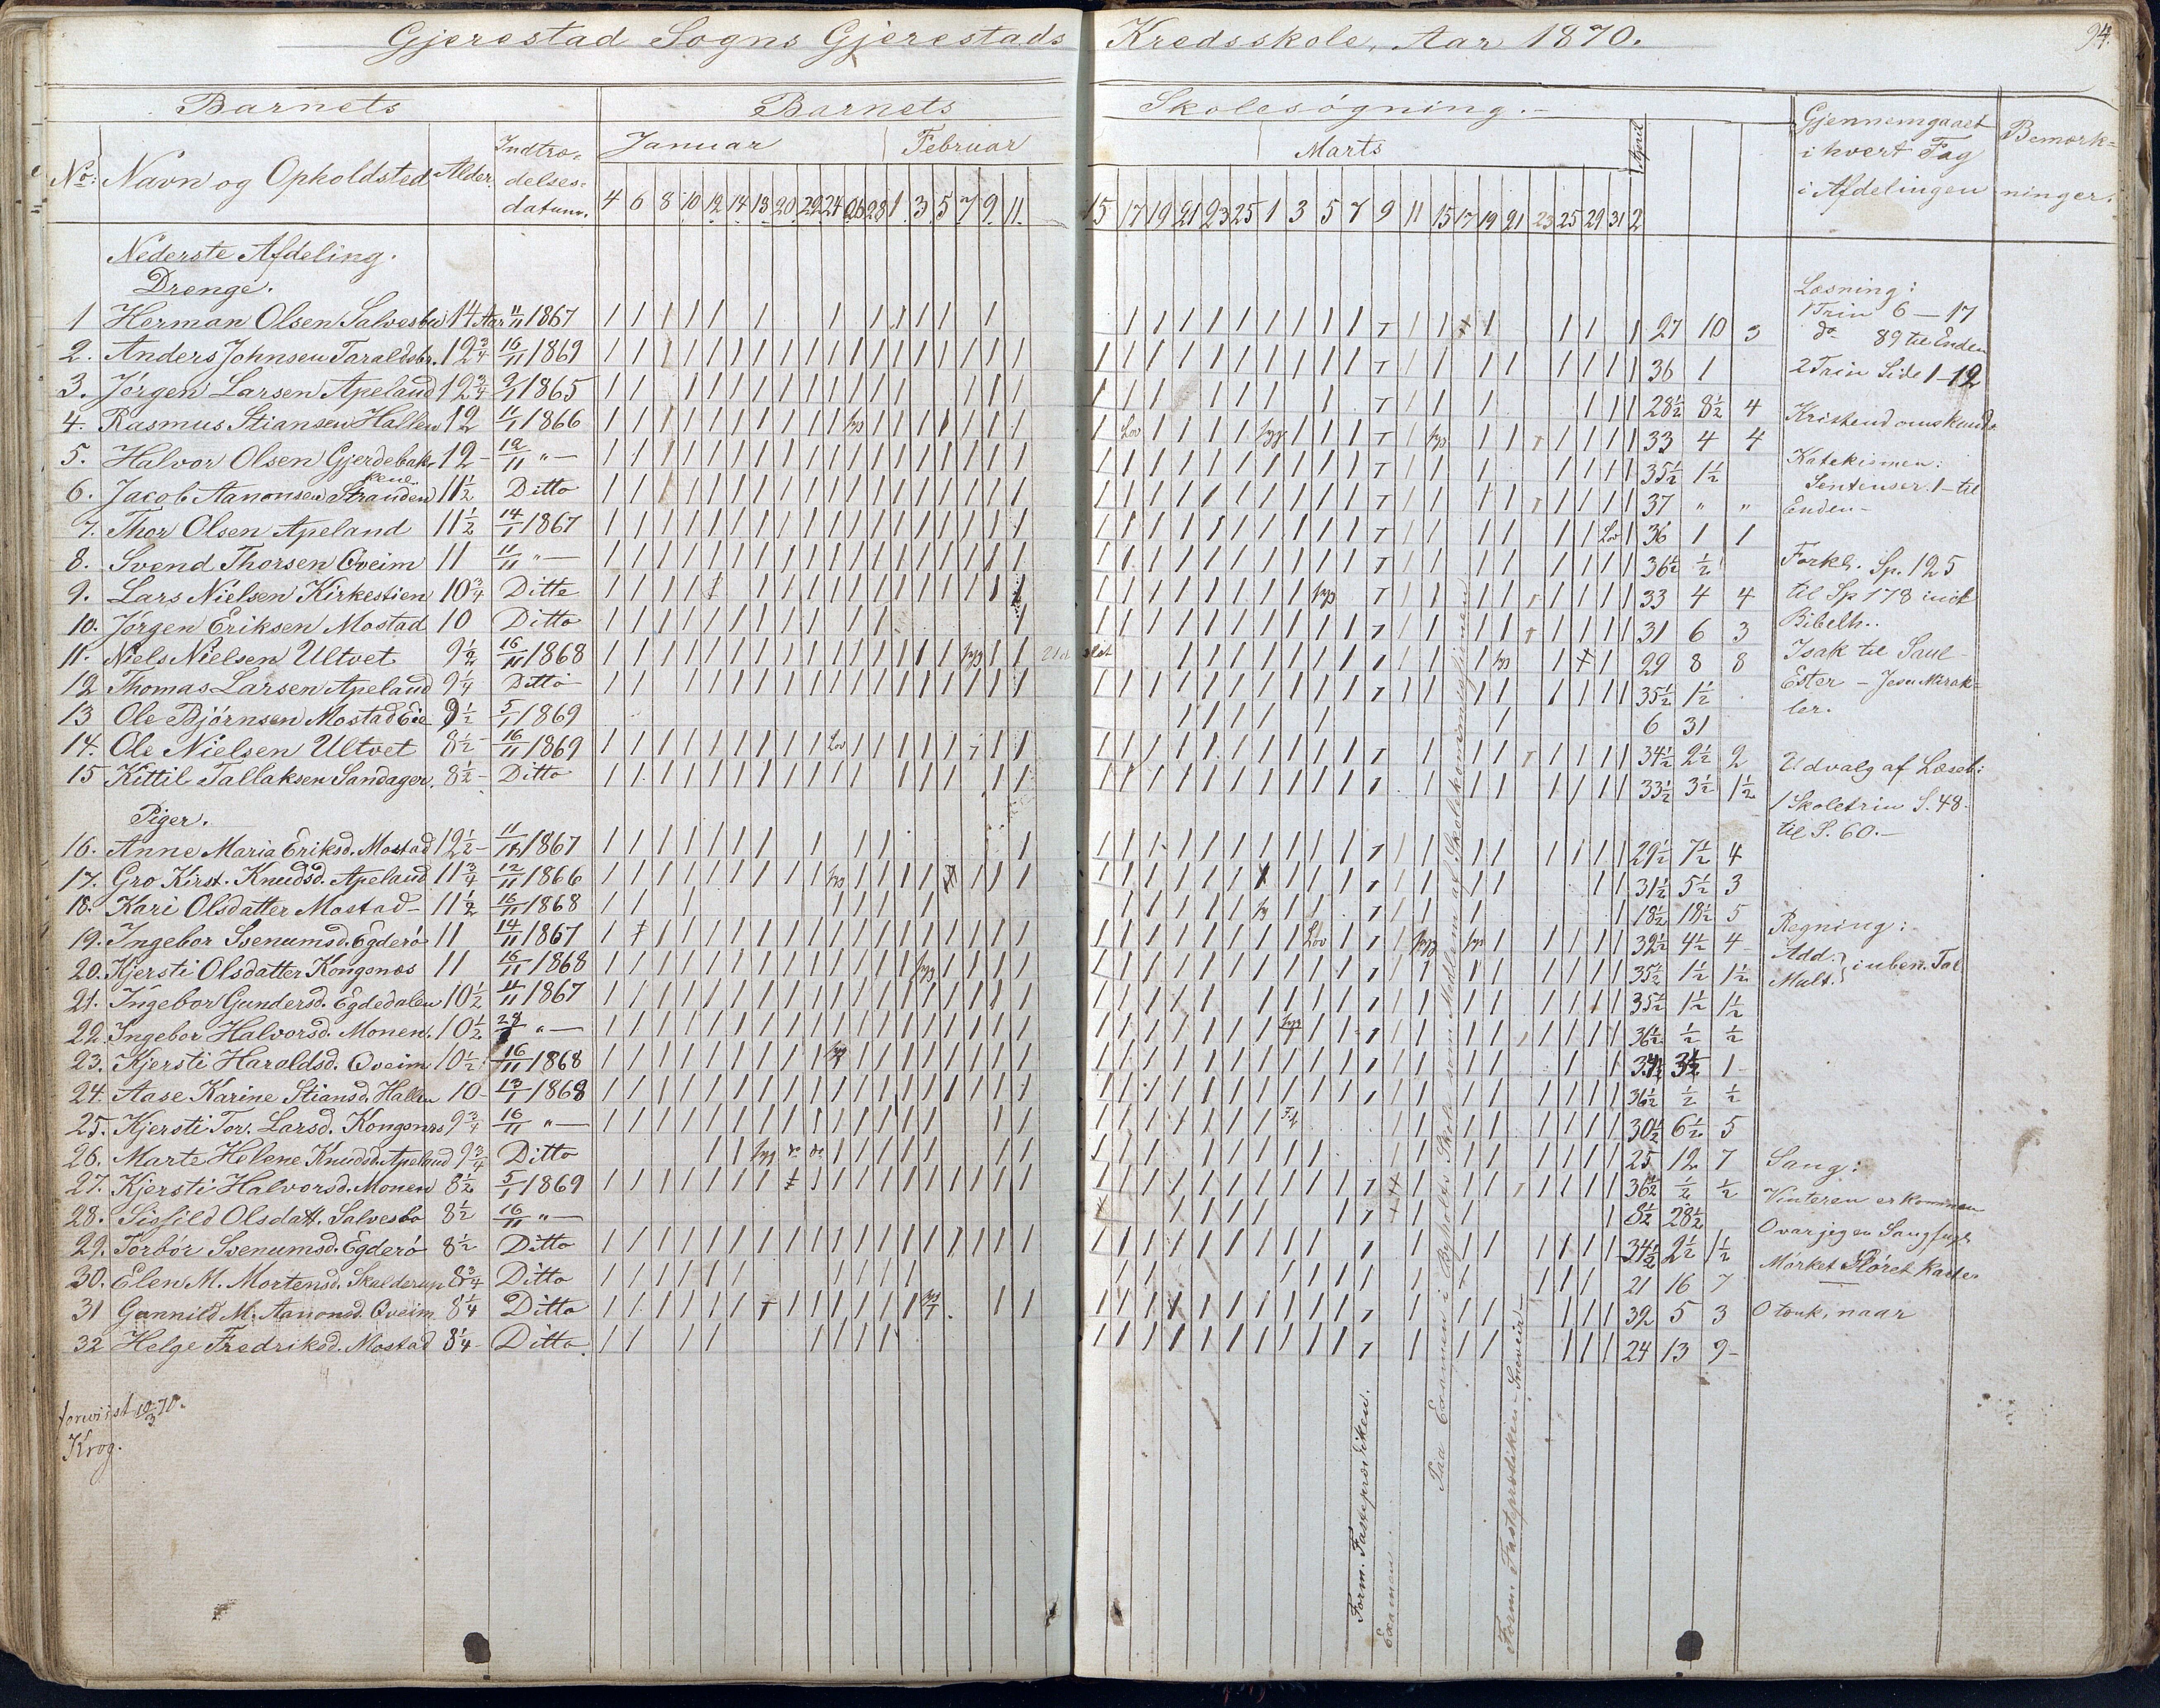 Gjerestad Sogns Gjerestads Kredsskole, Aar 1870.
94.
Barnets Barnets Skolesøgning.
No: Navn og Opholdsted Alder. Indtræ-delses-datum. Januar Februar Marts April Gjennemgaaet i hvert Fag i Afdelingen Bemærk-ninger.
4 6 8 10 12 14 18 20 22 24 26 28 1 3 5 7 9 11 15 17 19 21 23 25 1 3 5 7 9 11 15 17 19 21 23 25 29 31 2
Nederste Afdeling.
Drenge.
1 Herman Olsen Salvesbu 14 Aar 11/11 1867 27 10 3
2. Anders Johnsen Taraldsbr. 12 3/4 16/11 1869 36 1
3. Jørgen Larsen Apeland 12 3/4 1865 28 1/2 8 1/2 4
4. Rasmus Stiansen Hallen 12 11/1 1866 33 4 4
5. Halvor Olsen Gjerdebakkene 12 - 12/11 " — 35 1/2 1 1/2
6. Jacob Aanonsen Stranden 11 1/2 Ditto 37 " "
7. Thor Olsen Apeland 11 1/2 14/1 1867 36 1 1
8. Svend Thorsen Qveim 11 11/11 " — 36 1/2 1/2
9. Lars Nielsen Kirkestien 10 3/4 Ditto 33 4 4
10. Jørgen Eriksen Mostad 10 Ditto 31 6 3
11. Niels Nielsen Ultvet 9 1/2 16/11 1868 29 8 8
12 Thomas Larsen Apeland 9 1/4 Ditto 35 1/2 1 1/2
13 Ole Bjørnsen Mostad Eie 9 1/2 5/1 1869 6 31
14. Ole Nielsen Ultvet 8 1/2 - 16/11 1869 34 1/2 2 1/2 2
15 Kittil Tallaksen Sandager. 8 1/2 - Ditto 33 1/2 3 1/2 1 1/2
Piger.
16. Anne Maria Eriksd. Mostad 12 1/2 - 1867 29 1/2 7 1/2 4
17. Gro Kirst. Knudsd. Apeland 11 3/4 12/11 1866 31 1/2 5 1/2 3
18. Kari Olsdatter Mostad - 11 1/2 16/11 1868 18 1/2 18 1/2 5
19. Ingebor Svenumsd. Egderø 11 14/11 1867 32 1/2 4 1/2 4
20. Kjersti Olsdatter Kongsnæs 11 16/11 1868 35 1/2 1 1/2 1 1/2
21. Ingebor Gundersd. Egdedalen 10 1/2 11/11 1867 35 1/2 1 1/2 1 1/2
22. Ingebor Halvorsd. Monen. 10 1/2 " — 36 1/2 1/2 1/2
23. Kjersti Haroldsd. Qveim 10 1/2 16/11 1868 34 1/2 3 1/2 1
24. Aase Karine Stiansd. Hallen 10 - 13/1 1868 36 1/2 1/2 1/2
25. Kjersti Tor. Larsd. Kongsnæs 9 3/4 16/11 " — 30 1/2 6 1/2 5
26. Marte Helene Knudsd. Apeland 9 3/4 Ditto 25 12 7
27. Kjersti Halvorsd. Monen 8 1/2 5/1 1869 36 1/2 1/2 1/2
28. Sisfild Olsdatt. Salvesbo 8 1/2 16/11 " — 8 1/2 28 1/2
29. Torbør Svenumsd. Egderø 8 1/2 Ditto 34 1/2 2 1/2 1 1/2
30. Elen M. Mortensd. Skalderup 8 3/4 Ditto 21 16 7
31 Gunnild M. Aanonsd. Qveim 8 1/4 Ditto 32 5 3
32 Helge Fredriksd. Mostad 8 1/4 - Ditto. 24 13 9 -
Læsning:
1 Trin 6 — 17
do 89 til Enden
2 Trin Side 1-12
Kristendomskunds
Katekismen:
Sentenser. 1 - til
Enden -
Forkl. Sp. 125
til Sp 178 incl
Bibelh..
Isak til Saul -
Ester - Jesu Mirak-
ler.
Udvalg af Læseb:
1 Skoletrin S. 48-
til S. 60. -
Regning:
Add. } i uben. Tal
Mult. }
Sang:
Vinteren er kommen
O var jeg en Sangfugl
Mørket Sløret kaster
O tænk, naar
Form. Fasteprædiken.
Examen
Paa Examen i Østholts Skole som Medlem af Skolekommissionen
Form Fasteprædiken - Sneveir -
forviist 12/3 70.
Krog.